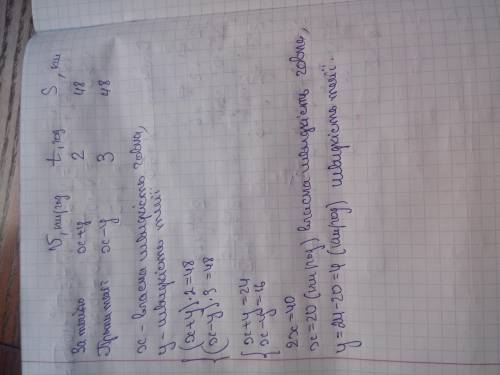 V, км/год t, год S, км
За течією x+y 2 48
Проти течії x-y 3 48
x - власна швидкість човна,
y - швидкість течії
{(x+y)·2=48
(x-y)·3=48
{x+y=24
x-y=16
2x=40
x=20 (км/год) власна швидкість човна,
y=24-20=4 (км/год) швидкість течії.